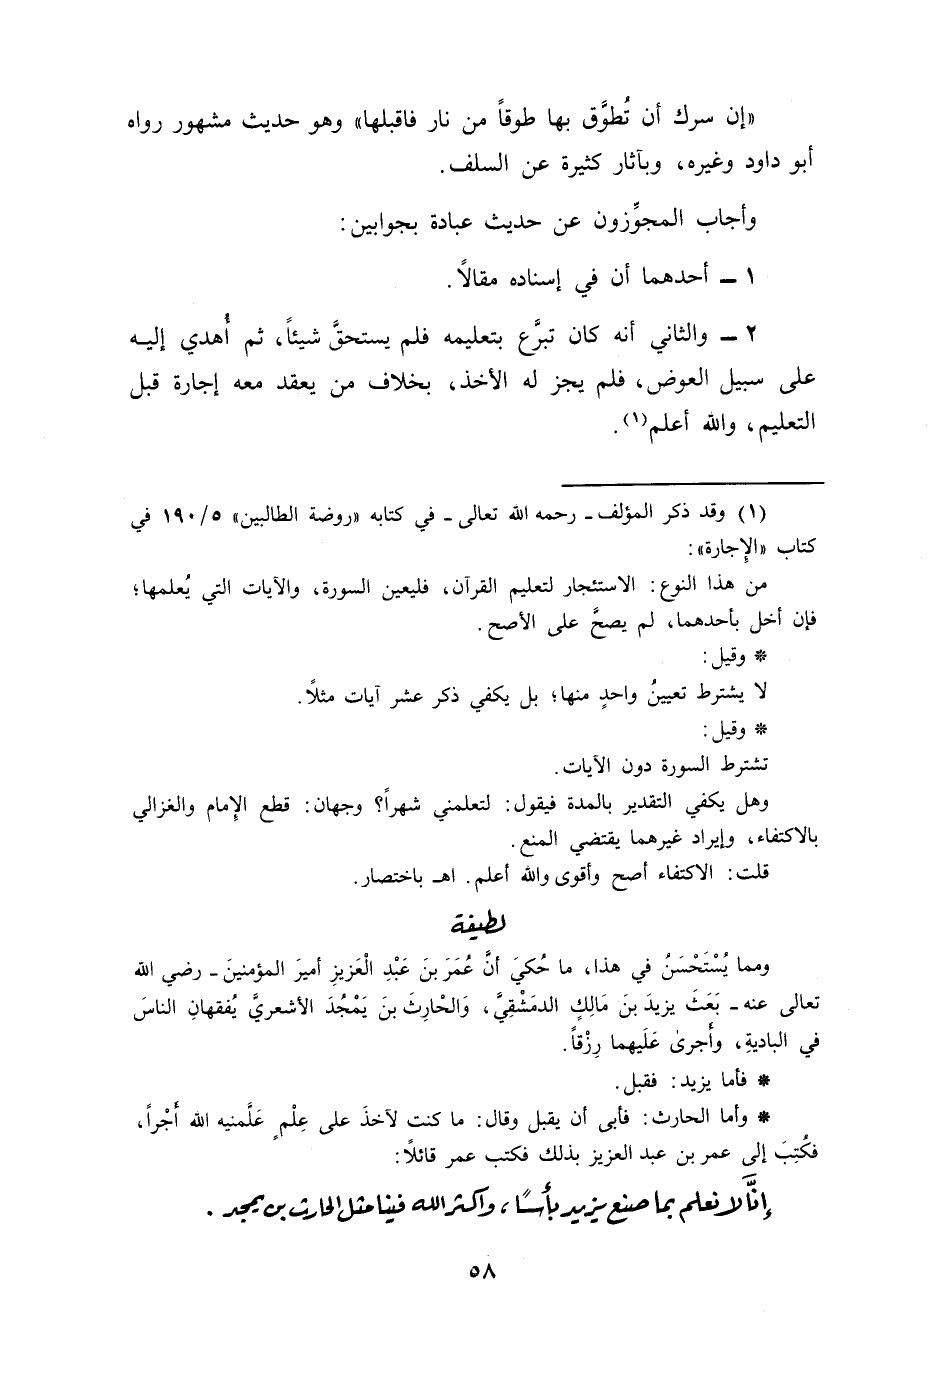 «إن سرك أن تُطوَّق بها طوقاً من نار فاقبلها» وهو حديث مشهور رواه
أبو داود وغيره، وبآثار كثيرة عن السلف.
وأجاب المجوِّزون عن حديث عبادة بجوابين:
١ ــ أحدهما أن في إسناده مقالاً.
٢ ــ والثاني أنه كان تبرَّع بتعليمه فلم يستحقَّ شيئاً، ثم أُهدي إليه
على سبيل العوض، فلم يجز له الأخذ، بخلاف من يعقد معه إجارة قبل
التعليم، والله أعلم(١).
(١) وقد ذكر المؤلف ـ رحمه الله تعالى ـ في كتابه «روضة الطالبين» ١٩٠/٥ في
كتاب «الإجارة»:
من هذا النوع: الاستئجار لتعليم القرآن، فليعين السورة، والآيات التي يُعلمها؛
فإن أخل بأحدهما، لم يصحَّ على الأصح.
* وقيل:
لا يشترط تعيينُ واحدٍ منها؛ بل يكفي ذكر عشر آيات مثلاً.
* وقيل:
تشترط السورة دون الآيات.
وهل يكفي التقدير بالمدة فيقول: لتعلمني شهراً؟ وجهان: قطع الإمام والغزالي
بالاكتفاء، وإيراد غيرهما يقتضي المنع.
قلت: الاكتفاء أصح وأقوى والله أعلم. اهـ باختصار.
لطيفة
ومما يُسْتَحْسَنُ في هذا، ما حُكيَ أنَّ عُمَرَ بنَ عَبْدِ الْعَزيزِ أميرَ المؤمنينَ ـ رضي الله
تعالى عنه ـ بَعَثَ يزيدَ بنَ مَالِكٍ الدمَشْقِيَّ، وَالْحارِثَ بنَ يَمْجُدَ الأشعريَّ يُفقهانِ الناسَ
في الباديةِ، وأَجرىٰ عَلَيهما رِزْقاً.
* فأما يزيد: فقبل.
* وأما الحارث: فأبى أن يقبل وقال: ما كنت لآخذَ على عِلْمٍ عَلَّمنيه الله أَجْراً،
فكُتِبَ إلى عمر بن عبد العزيز بذلك فكتب عمر قائلاً:
إنَّا لا نعلم بما صنع يزيد بأسًا، وأكثر الله فينا مثل الحارث بن يمجد.
٥٨